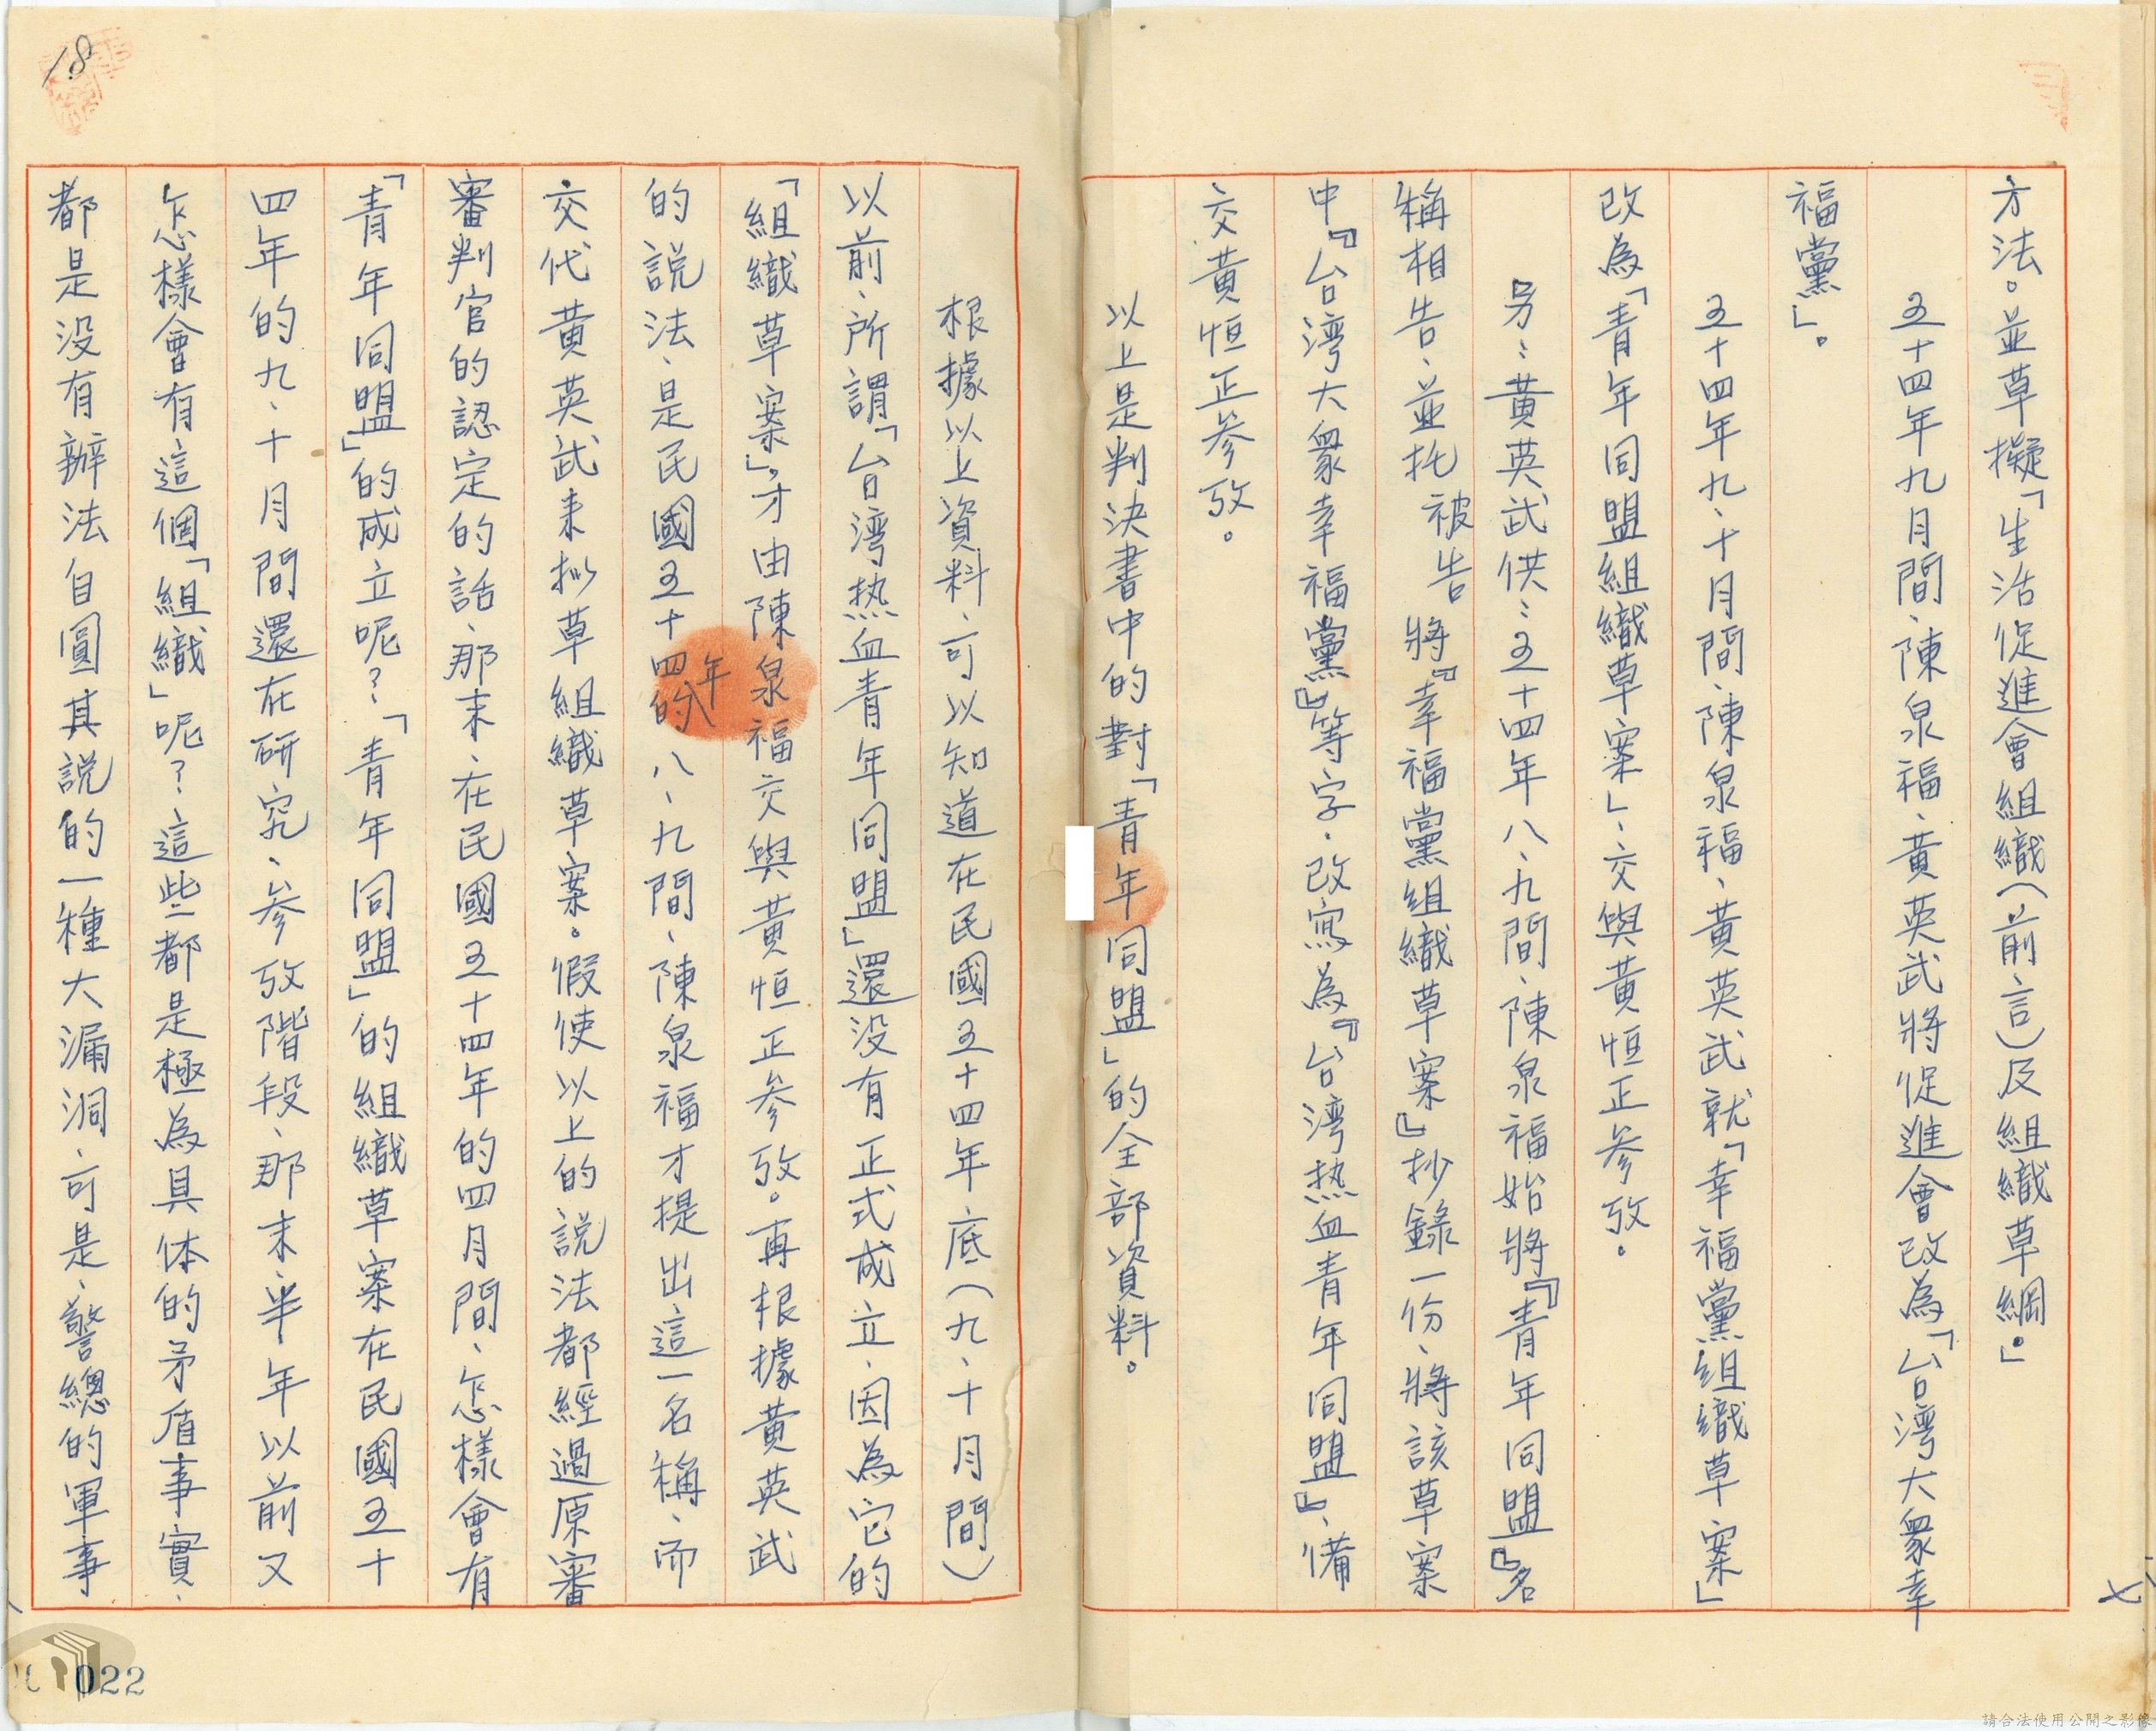 方法。並草擬「生活促進會組織（前言）及組織草綱。」
五十四年九月間、陳泉福、黃英武將促進會改為「台湾大衆幸
福黨」。
五十四年九、十月間、陳泉福、黃英武就「幸福黨組織草案」
改為「青年同盟組織草案」、交與黃恒正參攷。
另：黃英武供：五十四年八、九間、陳泉福始將『青年同盟』名
稱相告、並托被告將『幸福黨組織草案』抄錄一份、將該草案
中『台湾大衆幸福黨』等字．改寫為『台湾热血青年同盟』、備
交黃恒正參攷。
以上是判決書中的對「青年同盟」的全部資料。
七
根據以上資料、可以知道在民國五十四年底（九、十月間）
以前、所謂「台湾热血青年同盟」還没有正式成立、因為它的
「組織草案」，才由陳泉福交與黃恒正參攷。再根據黃英武
的説法、是民國五十四年的八、九間、陳泉福才提出這一名稱、而
交代黃英武来拟草組織草案。假使以上的説法都經過原審
審判官的認定的話、那末、在民國五十四年的四月間、怎樣會有
「青年同盟」的成立呢？「青年同盟」的組織草案在民國五十
四年的九、十月間還在研究、參攷階段、那末、半年以前又
怎樣會有這個「組織」呢？這些都是極為具体的矛盾事實、
都是没有辦法自圓其説的一種大漏洞、可是、警總的軍事
18
022
請合法使用公開之影像